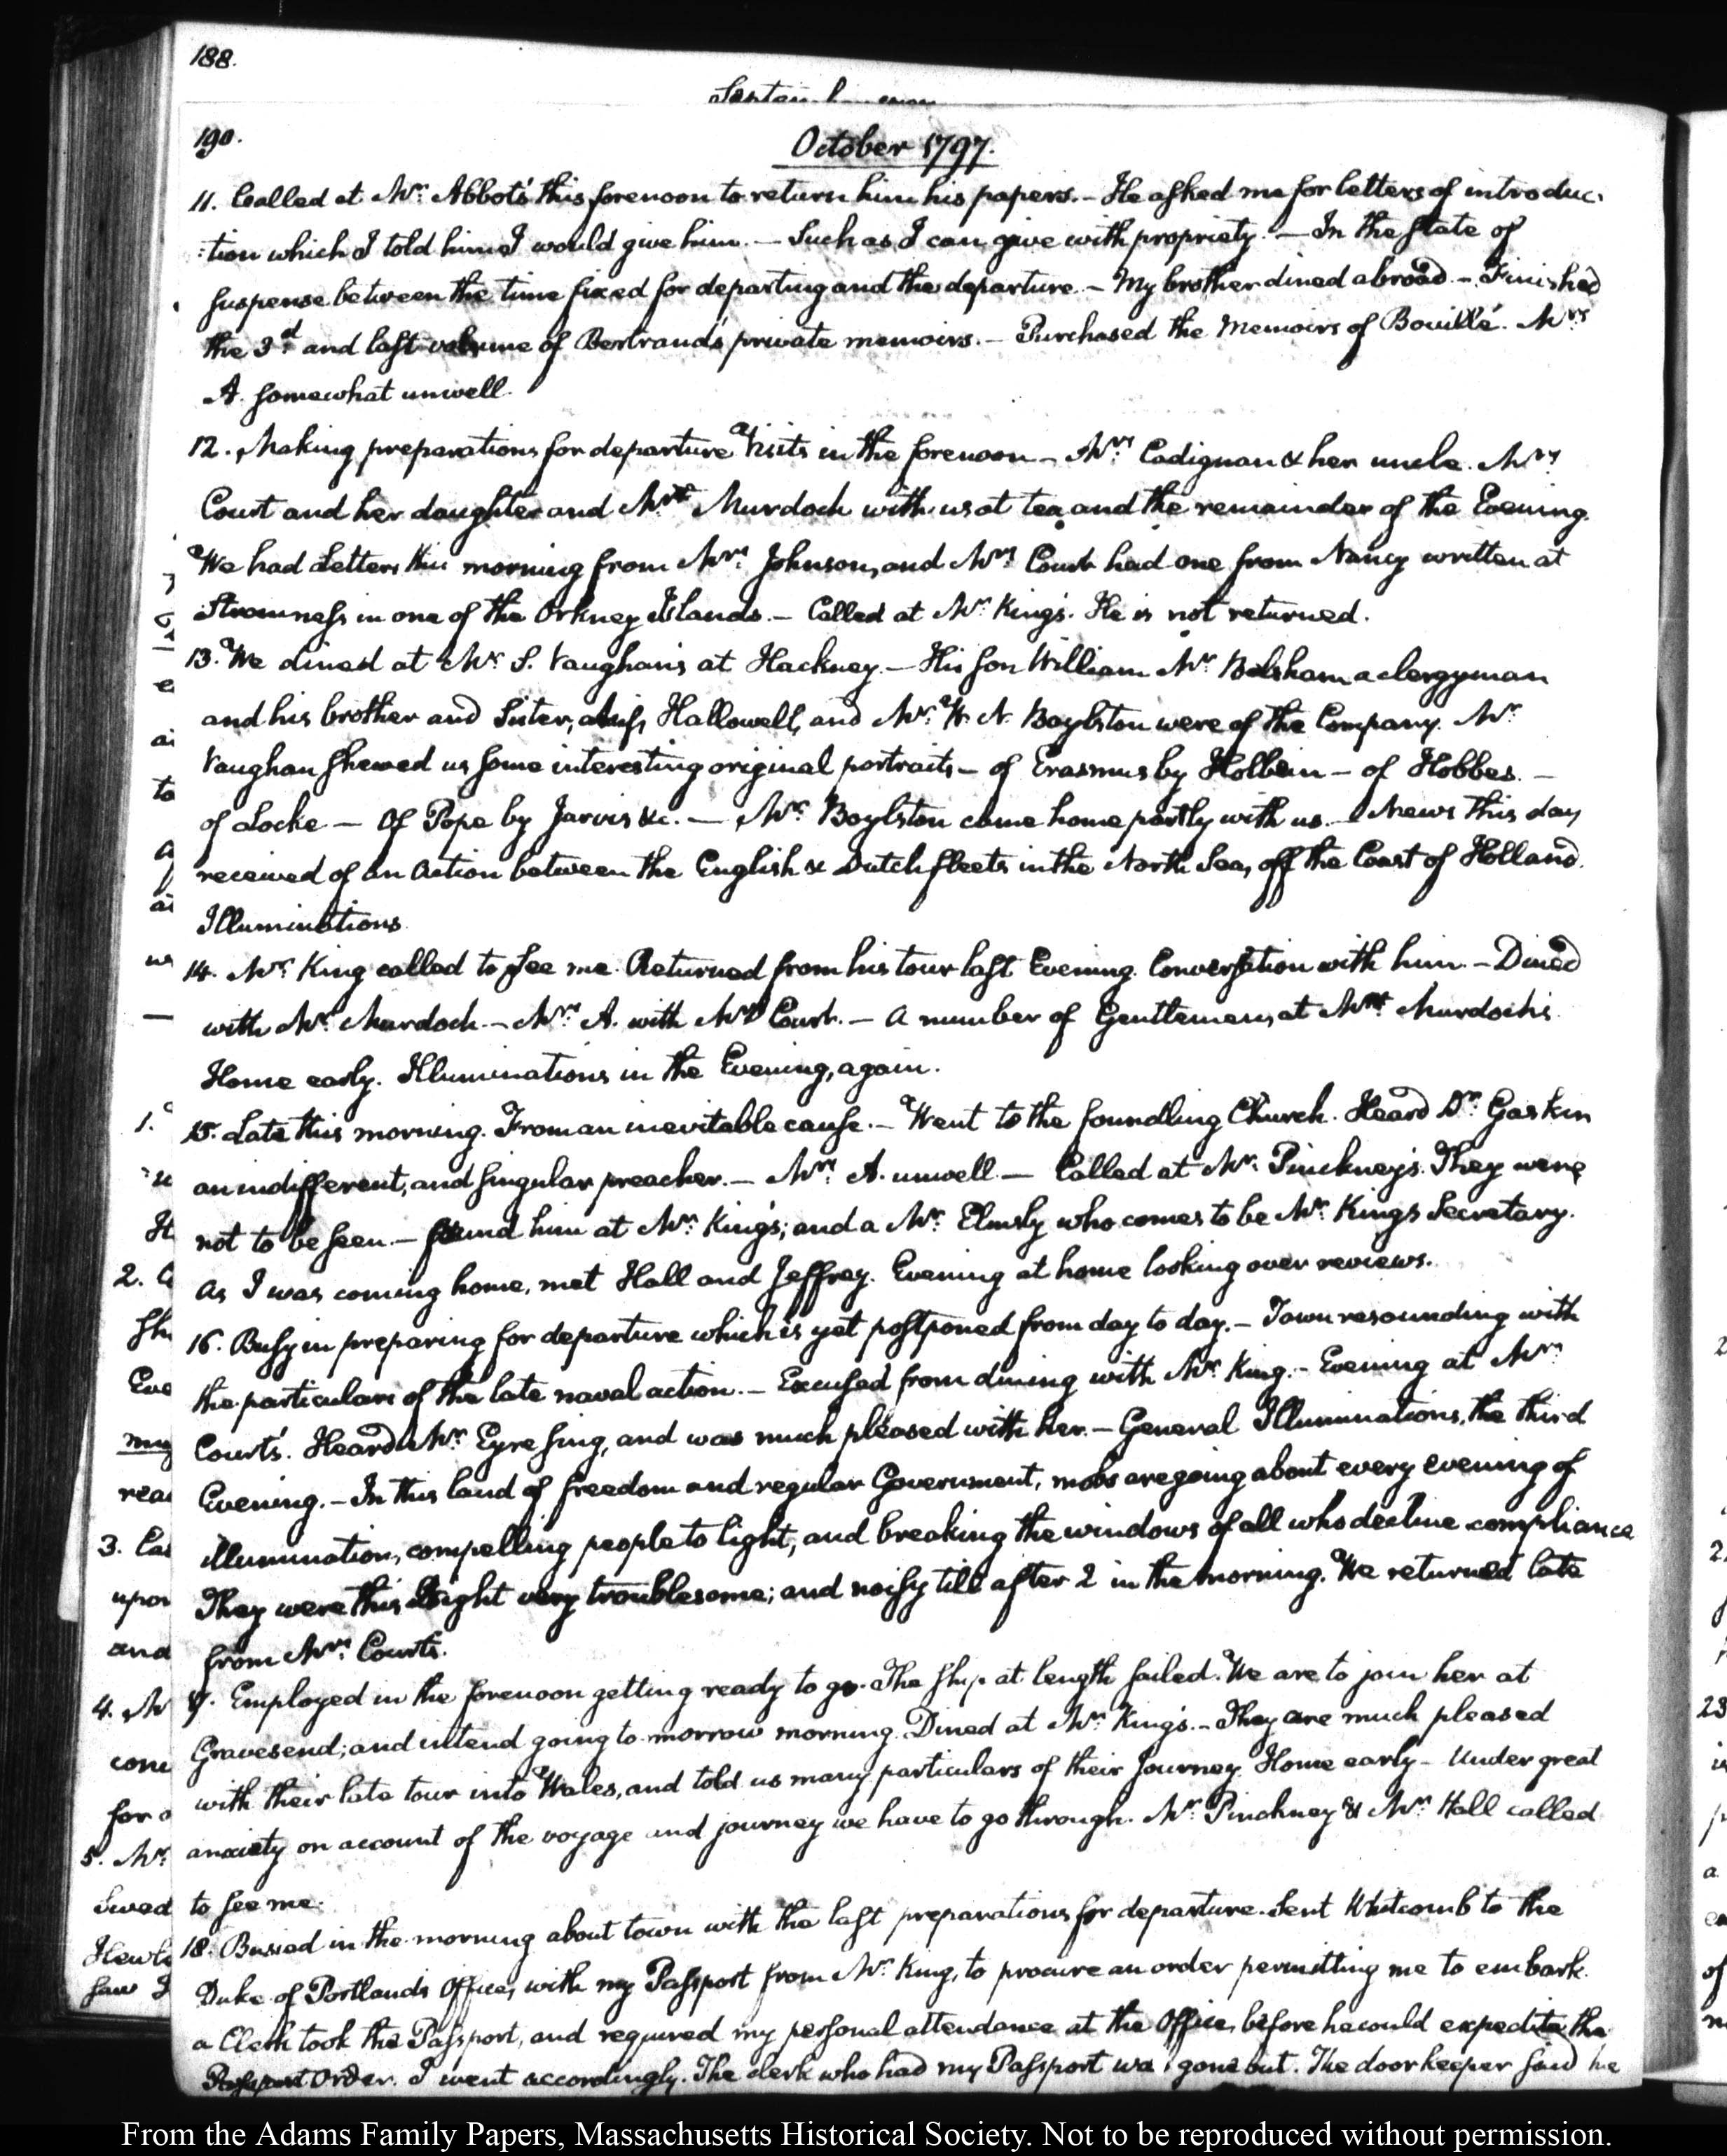 188.
190.
October 1797.
11. Called at Mr. Abbot's this forenoon to return him his papers. — He asked me for letters of introduc:
:tion which I told him I would give him. — Such as I can give with propriety. — In the state of
suspense between the time fixed for departing and the departure. — My brother dined abroad. — Finished
the 3d. and last volume of Bertrand's private memoirs. — Purchased the Memoirs of Bouillé. Mrs.
A. somewhat unwell.
12. Making preparations for departure. Visits in the forenoon — Mrs. Cadignan & her uncle. Mrs.
Court and her daughter and Mr. Murdoch with us at tea, and the remainder of the Evening.
We had Letters this morning from Mrs. Johnson, and Mrs. Court had one from Nancy written at
Stromness in one of the Orkney Islands. — Called at Mr. King's. He is not returned.
13. We dined at Mr. S. Vaughan's at Hackney. — His son William Mr. Belsham a clergyman
and his brother and Sister, Miss Hallowell, and Mr. W. N. Boylston were of the Company. Mr.
Vaughan shewed us some interesting original portraits — of Erasmus by Holbein — of Hobbes. —
of Locke — Of Pope by Jarvis &c. — Mr. Boylston came home partly with us. — News this day
received of an Action between the English & Dutch fleets in the North Sea, off the Coast of Holland.
Illuminations
14. Mr. King called to see me. Returned from his tour last Evening. Conversation with him. — Dined
with Mr. Murdoch. — Mrs. A. with Mrs. Court. — A number of Gentlemen, at Mr. Murdoch's
Home early. Illuminations in the Evening, again.
15. Late this morning. From an inevitable cause. — Went to the foundling Church. Heard Dr. Gaskin
an indifferent, and singular preacher. — Mrs. A. unwell. — Called at Mr. Pinckney's. They were
not to be seen. — found him at Mr. King's; and a Mr. Elmsly who comes to be Mr. King's Secretary.
As I was coming home, met Hall and Jeffrey. Evening at home looking over reviews.
16. Busy in preparing for departure which is yet postponed from day to day. — Town resounding with
the particulars of the late naval action. — Excused from dining with Mr. King. — Evening at Mrs.
Courts'. Heard Mrs. Eyre sing, and was much pleased with her. — General Illuminations, the third
Evening. — In this land of freedom and regular Government, mobs are going about every evening of
illumination, compelling people to light, and breaking the windows of all who decline compliance
They were this Night very troublesome; and noisy till after 2 in the morning. We returned late
from Mrs. Courts.
17. Employed in the forenoon getting ready to go. The ship at length sailed. We are to join her at
Gravesend; and intend going to-morrow morning. Dined at Mr. King's. — They are much pleased
with their late tour into Wales, and told us many particulars of their Journey. Home early — Under great
anxiety on account of the voyage and journey we have to go through. Mr. Pinckney & Mr. Hall called
to see me.
18. Busied in the morning about town with the last preparations for departure. Sent Whitcomb to the
Duke of Portland's Office, with my Passport from Mr. King, to procure an order permitting me to embark.
a Clerk took the Passport, and required my personal attendance at the Office, before he could expedite the
Passport Order. I went accordingly. The clerk who had my Passport was gone out. The door keeper said he
From the Adams Family Papers, Massachusetts Historical Society. Not to be reproduced without permission.